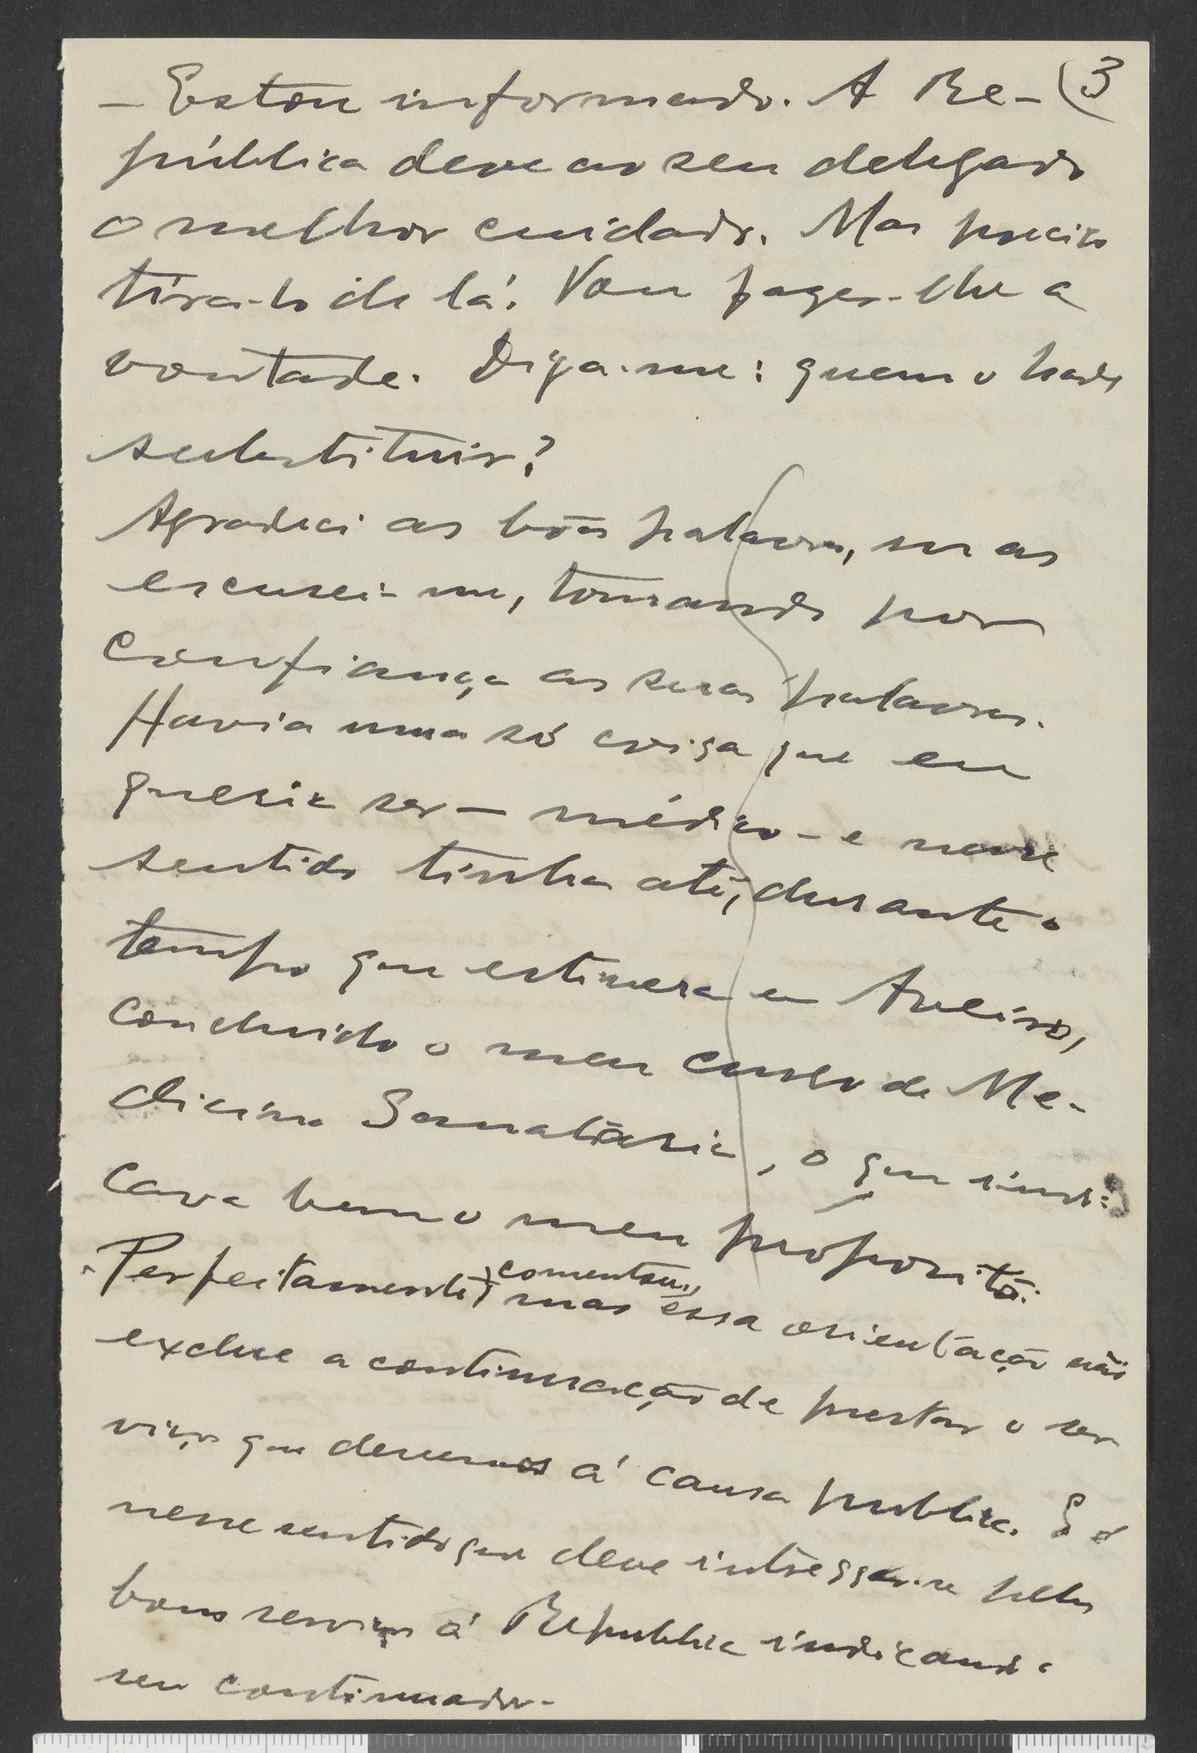 3
– Estou informado. A Re-
pública deve ao seu delegado
o melhor cuidado. Mas preciso
tira-lo de lá. Vou fazer-lhe a
vontade. Diga-me: quem o hade
substituir?
Agradeci as bôas palavras, mas
escusei-me, tomando por
confiança as suas palavras.
Havia uma só coisa que eu
queria ser – médico – e nesse
sentido tinha até, durante o
tempo que estivera em Aveiro,
concluido o meu curso de Me-
dicina Sanatária, o que indi-
cava bem o meu propósito.
Perfeitamente, comentou,
mas essa orientação não
exclue a continuação de prestar o ser
viço que devemos á causa publica. É
nesse sentido que deve interessar-se pelos
bons serviços á Republica indicando o
seu continuador.